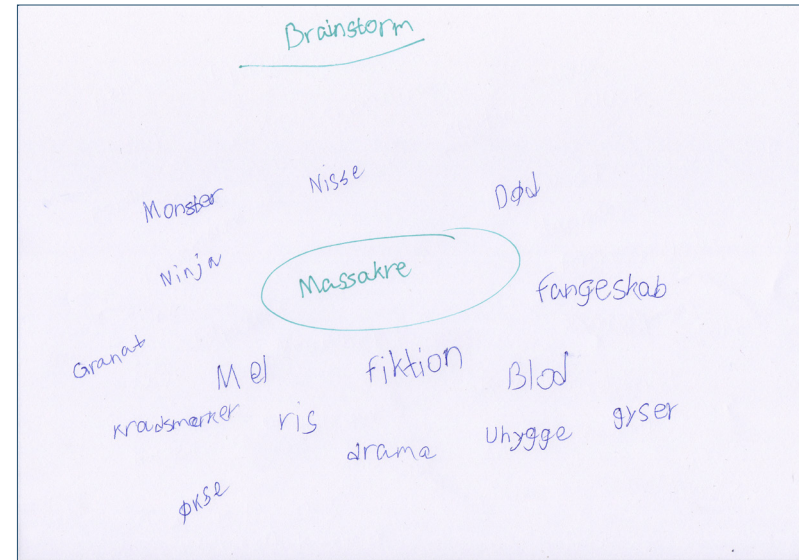 Brainstorm
Nisse
Monster
Død
Ninja
Massakre
fangeskab
Granat
Mel
fiktion
Blod
Kradsmærker
ris
drama
Uhygge
gyser
økse